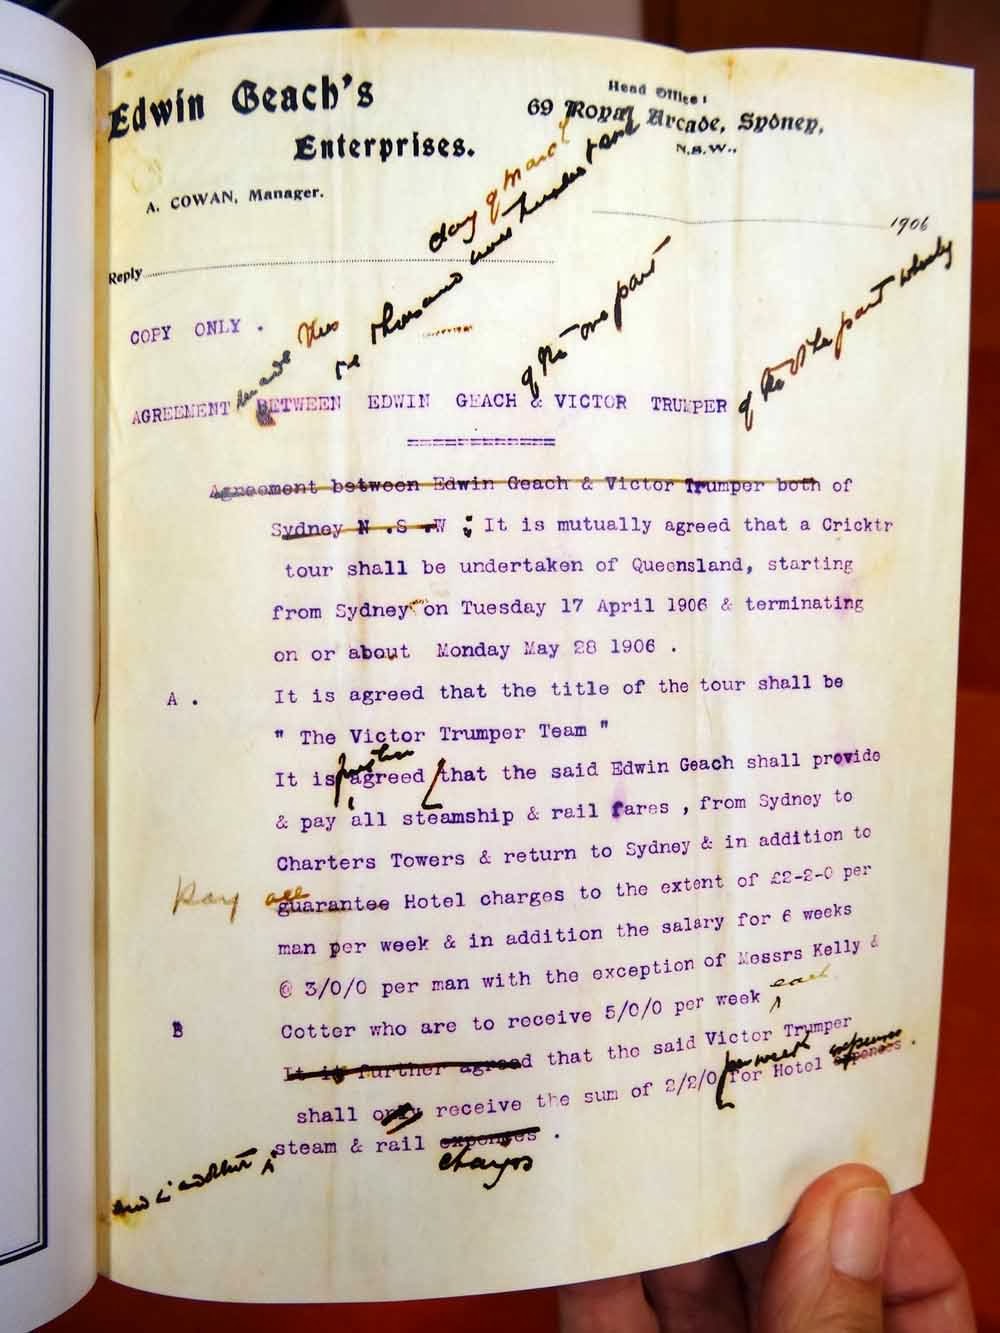 Edwin Geach's
Enterprises.
Head Office:
69 Royal Arcade, Sydney,
N.S.W.,
A. COWAN, Manager.
1906
Reply
day of March
COPY ONLY .
made this
thousand nine hundred and
of the one part
of the other part whereby
AGREEMENT BETWEEN EDWIN GEACH & VICTOR TRUMPER
Agreement between Edwin Geach & Victor Trumper both of
Sydney N .S .W ; It is mutually agreed that a Cricktr
tour shall be undertaken of Queensland, starting
from Sydney on Tuesday 17 April 1906 & terminating
on or about Monday May 28 1906 .
A . It is agreed that the title of the tour shall be
" The Victor Trumper Team "
further
It is agreed that the said Edwin Geach shall provide
& pay all steamship & rail fares , from Sydney to
Charters Towers & return to Sydney & in addition to
pay all
guarantee Hotel charges to the extent of £2-2-0 per
man per week & in addition the salary for 6 weeks
@ 3/0/0 per man with the exception of Messrs Kelly &
each
B Cotter who are to receive 5/0/0 per week
It is further agreed that the said Victor Trumper
per week expenses
shall only receive the sum of 2/2/0 for Hotel expenses .
and in addition steam & rail expenses .
charges